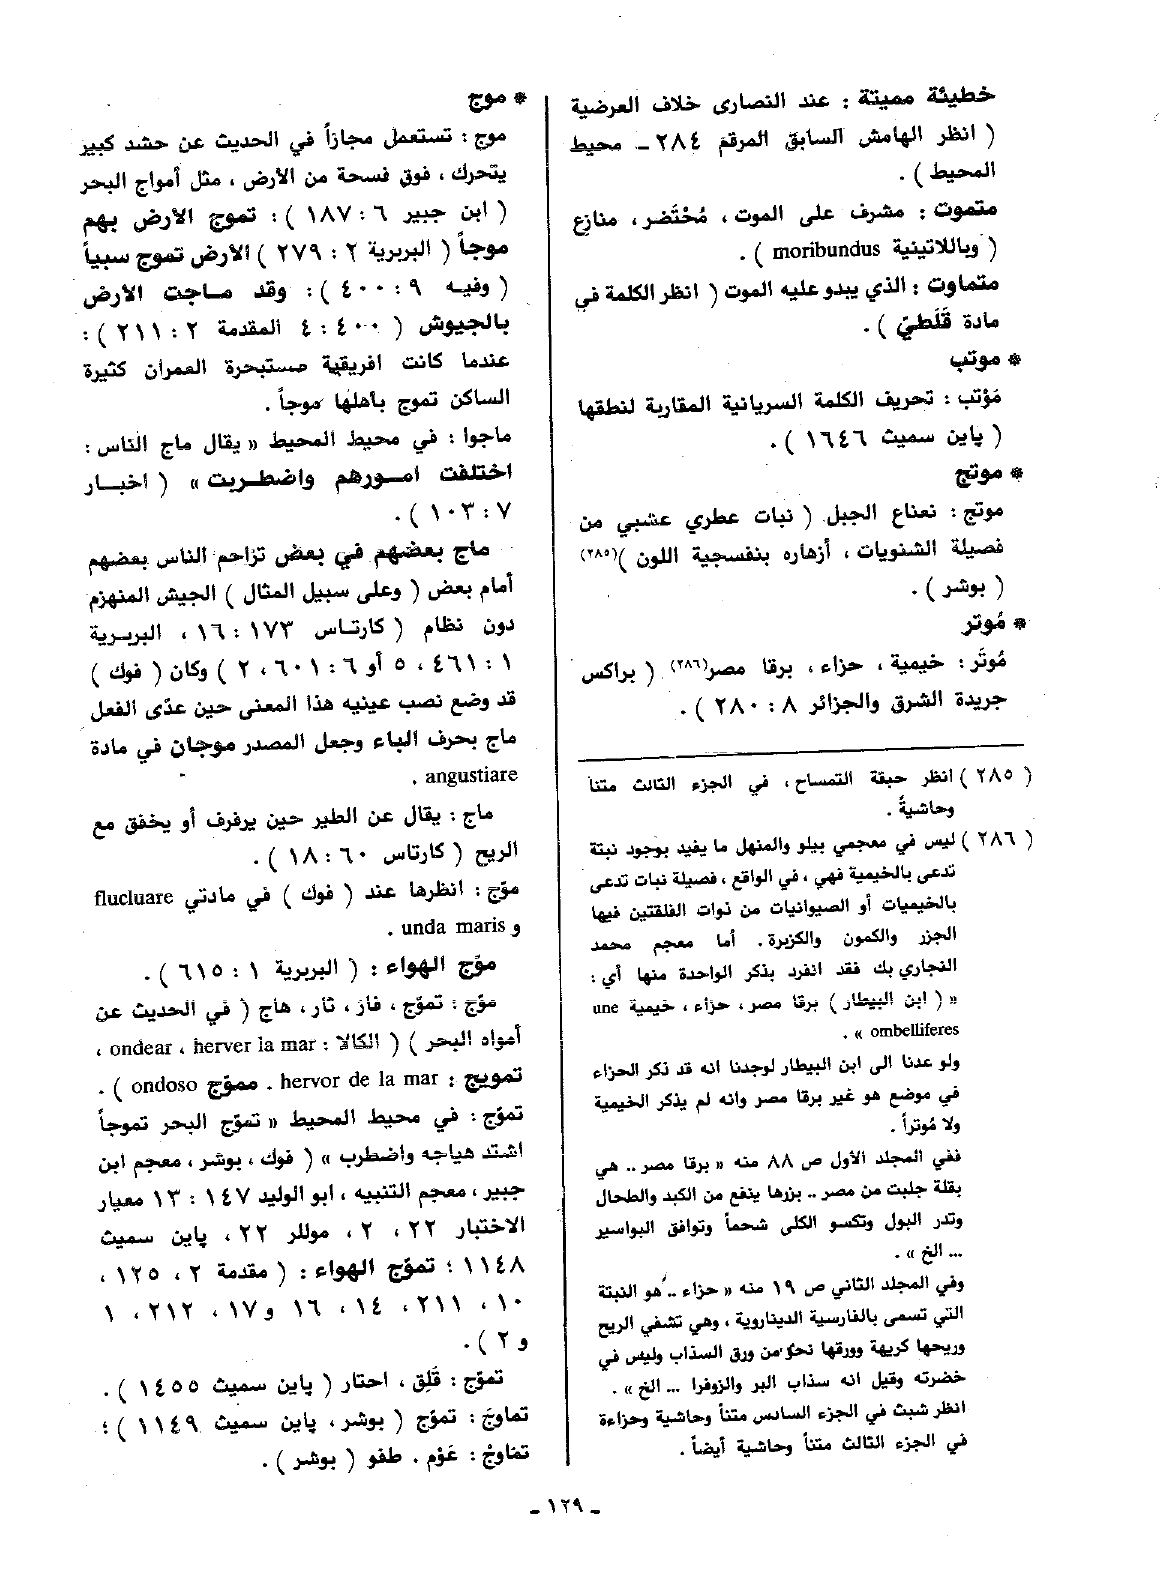 خطيئة مميتة : عند النصارى خلاف العرضية
( انظر الهامش السابق المرقم ٢٨٤ ـ محيط
المحيط ) .
متموت : مشرف على الموت ، مُحْتَضر ، منازع
( وباللاتينية moribundus ) .
متماوت : الذي يبدو عليه الموت ( انظر الكلمة في
مادة قَلَطيّ ) .
* موتب
مَوْتب : تحريف الكلمة السريانية المقاربة لنطقها
( پاين سميث ١٦٤٦ ) .
* موتج
موتج : نعناع الجبل ( نبات عطري عشبي من
فصيلة الشنويات ، أزهاره بنفسجية اللون )(٢٨٥)
( بوشر ) .
* مُوتر
مُوتَر : خيمية ، حزاء ، برقا مصر(٢٨٦) ( براكس
جريدة الشرق والجزائر ٨ : ٢٨٠ ) .
( ٢٨٥ ) انظر حبقة التمساح ، في الجزء الثالث متناً
وحاشيةً .
( ٢٨٦ ) ليس في معجمي بيلو والمنهل ما يفيد بوجود نبتة
تدعى بالخيمية فهي ، في الواقع ، فصيلة نبات تدعى
بالخيميات أو الصيوانيات من نوات الفلقتين فيها
الجزر والكمون والكزبرة . أما معجم محمد
النجاري بك فقد انفرد بذكر الواحدة منها أي :
« ( ابن البيطار ) برقا مصر ، حزاء ، خيمية une
ombelliferes » .
ولو عدنا الى ابن البيطار لوجدنا انه قد ذكر الحزاء
في موضع هو غير برقا مصر وانه لم يذكر الخيمية
ولا مُوتراً .
ففي المجلد الأول ص ٨٨ منه « برقا مصر .. هي
بقلة جلبت من مصر .. بزرها ينفع من الكبد والطحال
وتدر البول وتكسو الكلى شحماً وتوافق البواسير
... الخ » .
وفي المجلد الثاني ص ١٩ منه « حزاء .. هو النبتة
التي تسمى بالفارسية الديناروية ، وهي تشفي الريح
وريحها كريهة وورقها نحو من ورق السذاب وليس في
خضرته وقيل انه سذاب البر والزوفرا ... الخ » .
انظر شبث في الجزء السادس متناً وحاشية وحزاءة
في الجزء الثالث متناً وحاشية أيضاً .
* موج
موج : تستعمل مجازاً في الحديث عن حشد كبير
يتحرك ، فوق فسحة من الأرض ، مثل أمواج البحر
( ابن جبير ٦ : ١٨٧ ) : تموج الارض بهم
موجاً ( البربرية ٢ : ٢٧٩ ) الارض تموج سبياً
( وفيه ٩ : ٤٠٠ ) : وقد ماجت الارض
بالجيوش ( ٤٠٠ : ٤ المقدمة ٢ : ٢١١ ) :
عندما كانت افريقية مستبحرة العمران كثيرة
الساكن تموج بأهلها موجاً .
ماجوا : في محيط المحيط « يقال ماج الناس :
اختلفت امورهم واضطربت » ( اخبار
٧ : ١٠٣ ) .
ماج بعضهم في بعض تزاحم الناس بعضهم
أمام بعض ( وعلى سبيل المثال ) الجيش المنهزم
دون نظام ( كارتاس ١٧٣ : ١٦ ، البربرية
١ : ٤٦١ ، ٥ أو ٦ : ٦٠١ ، ٢ ) وكان ( فوك )
قد وضع نصب عينيه هذا المعنى حين عدّى الفعل
ماج بحرف الباء وجعل المصدر موجان في مادة
angustiare .
ماج : يقال عن الطير حين يرفرف أو يخفق مع
الريح ( كارتاس ٦٠ : ١٨ ) .
موّج : انظرها عند ( فوك ) في مادتي flucluare
و unda maris .
موّج الهواء : ( البربرية ١ : ٦١٥ ) .
موّج : تموّج ، فاز ، ثار ، هاج ( في الحديث عن
أمواه البحر ) ( الكالا : ondear ، herver la mar ،
تمويج : hervor de la mar . مموّج ondoso ) .
تموّج : في محيط المحيط « تموّج البحر تموجاً
اشتد هياجه واضطرب » ( فوك ، بوشر ، معجم ابن
جبير ، معجم التنبيه ، ابو الوليد ١٤٧ : ١٣ معيار
الاختبار ٢٢ ، ٢ ، موللر ٢٢ ، پاين سميث
١١٤٨ ؛ تموّج الهواء : ( مقدمة ٢ ، ١٢٥ ،
١٠ ، ٢١١ ، ١٤ ، ١٦ و١٧ ، ٢١٢ ، ١
و ٢ ) .
تموّج : قَلِق ، احتار ( پاين سميث ١٤٥٥ ) .
تماوجَ : تموّج ( بوشر ، پاين سميث ١١٤٩ ) ؛
تماوجُ : عَوْم . طفو ( بوشر ) .
ـ ١٢٩ ـ